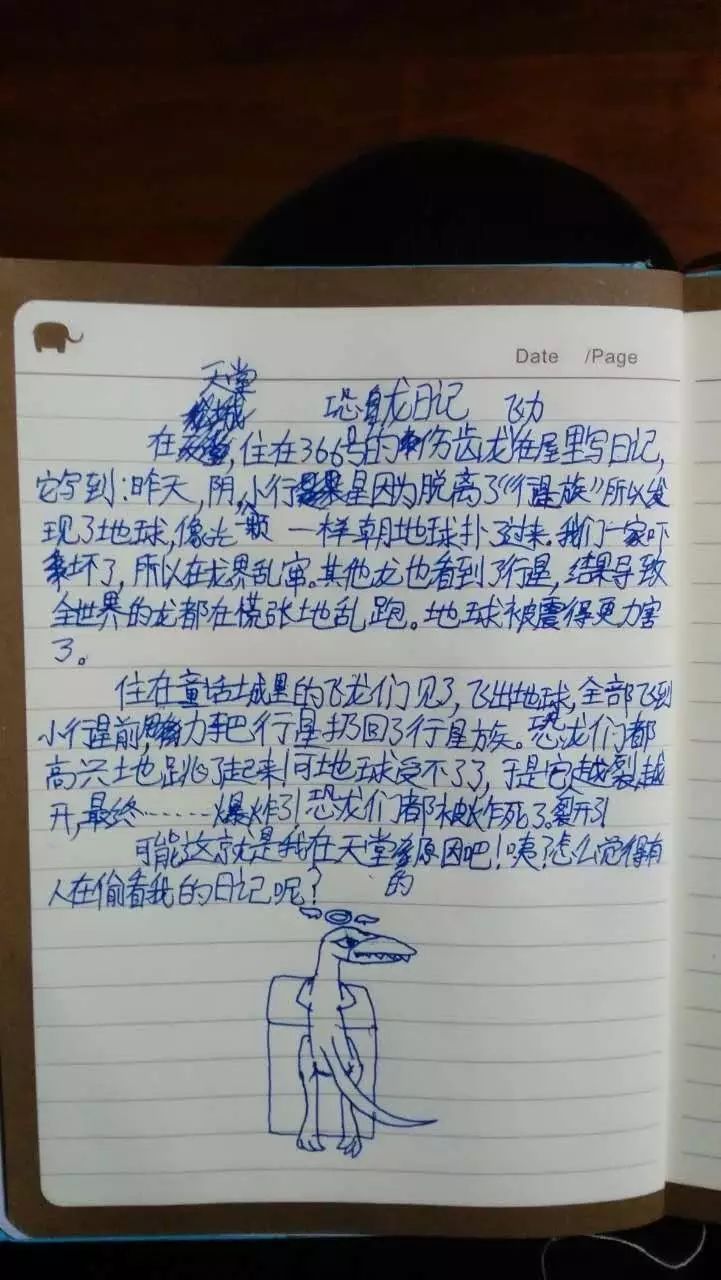 Date /Page
天堂
恐龙日记 飞力
在,住在366号的伤齿龙在屋里写日记,
它写到:昨天,阴,小行星因为脱离了“行星族”所以发
现了地球,像光一颗一样朝地球扑了过来。我们一家吓
坏了,所以在龙界乱窜。其他龙也看到了行星,结果导致
全世界的龙都在慌张地乱跑。地球被震得更力害
了。
住在童话城里的飞龙们见了,飞出地球,全部飞到
小行星前,力把行星扔回了行星族。恐龙们都
高兴地跳了起来!可地球受不了了,于是它越裂越
开,最终……爆炸了!恐龙们都被炸死了。裂开了!
可能这就是我在天堂的原因吧!咦?怎么觉得有
人在偷看我的日记呢?